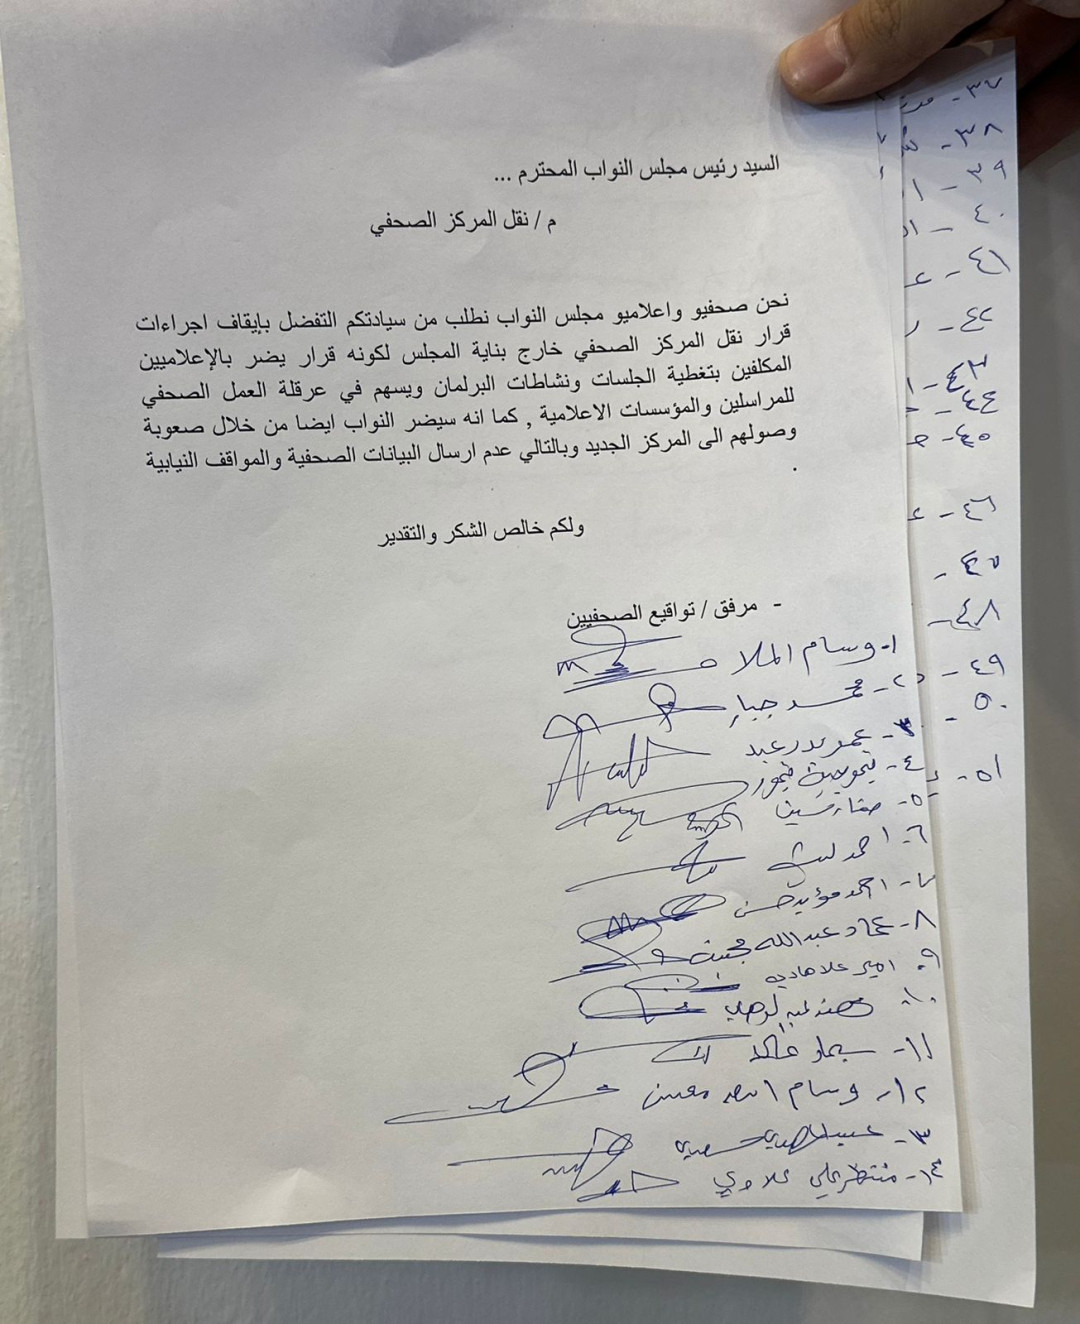 السيد رئيس مجلس النواب المحترم ...
م / نقل المركز الصحفي
نحن صحفيو واعلاميو مجلس النواب نطلب من سيادتكم التفضل بإيقاف اجراءات
قرار نقل المركز الصحفي خارج بناية المجلس لكونه قرار يضر بالإعلاميين
المكلفين بتغطية الجلسات ونشاطات البرلمان ويسهم في عرقلة العمل الصحفي
للمراسلين والمؤسسات الاعلامية , كما انه سيضر النواب ايضا من خلال صعوبة
وصولهم الى المركز الجديد وبالتالي عدم ارسال البيانات الصحفية والمواقف النيابية
.
ولكم خالص الشكر والتقدير
- مرفق / تواقيع الصحفيين
١- وسام الملا
٢- محمد جبار
٣- عمر بدر عبد
٤-
٥- صفاء حسين
٦- احمد ليث
٧- احمد مؤيد حسن
٨- عماد عبدالله
٩- امير علاء هادي
١٠- مهند عبد الوهاب
١١- خالد
١٢- وسام اسعد محسن
١٣-
١٤- منتظر علي علاوي
٣٧-
٣٨-
٣٩-
٤٠-
٤١-
٤٢-
٤٣-
٤٤-
٤٥-
٤٦-
٤٧-
٤٨-
٤٩-
٥٠-
٥١-